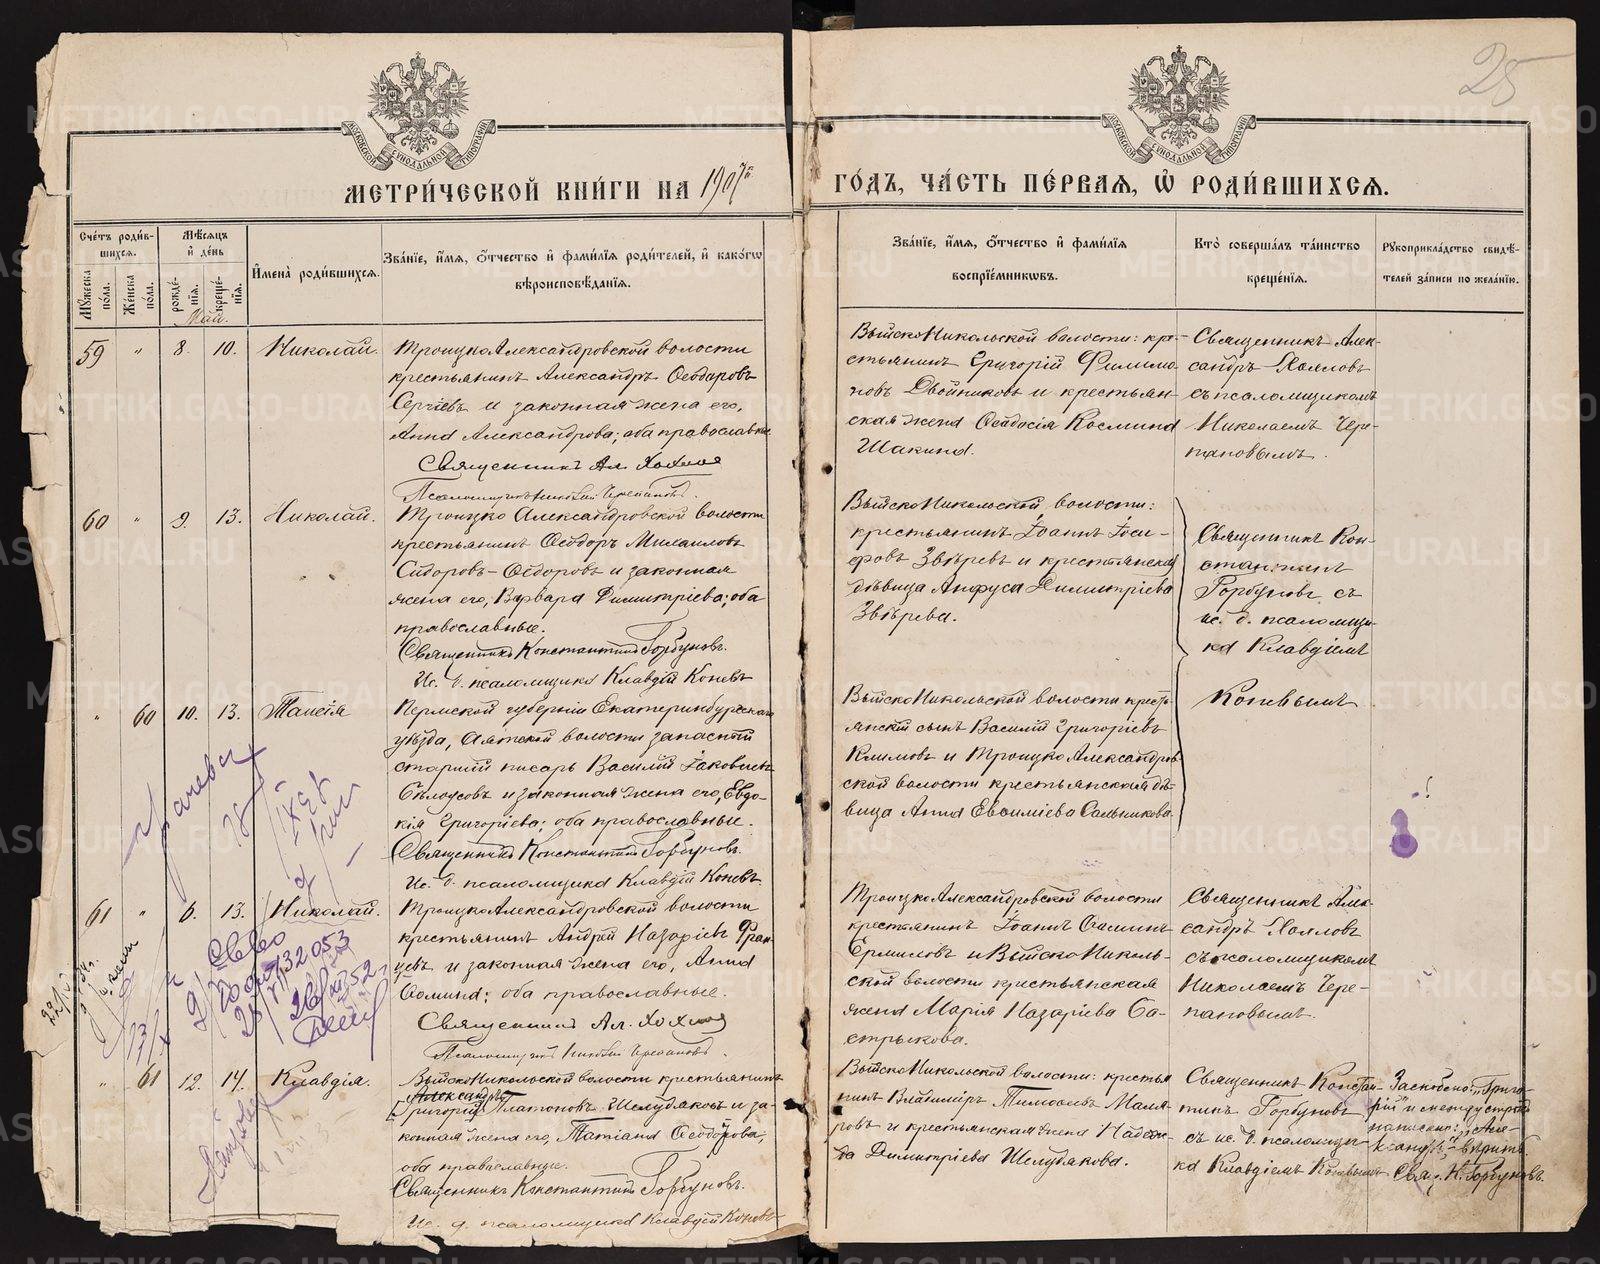 25
МОСКОВСКОЙ СѴНОДАЛЬНОЙ ТИПОГРАФІИ
МОСКОВСКОЙ СѴНОДАЛЬНОЙ ТИПОГРАФІИ
МЕТРИ́ЧЕСКОЙ КНИ́ГИ НА 1907й ГО́ДЪ, ЧА́СТЬ ПЕ́РВАЯ, Ѡ҆ РОДИ́ВШИХСЯ.
Сче́тъ роди́вшихся.
Мꙋ́жеска по́ла.
Же́нска по́ла.
Мѣ́сяцъ и҆ де́нь
рожде́нія.
креще́нія.
И҆мена̀ роди́вшихся.
Зва́ніе, и҆́мя, ѻ҆́тчество и҆ фами́лія роди́телей, и҆ како́гѡ
вѣроисповѣ́данія.
Зва́ніе, и҆́мя, ѻ҆́тчество и҆ фами́лія
воспріе́мникѡвъ.
Кто̀ соверша́лъ та́инство
креще́нія.
Рꙋкоприкла́дство свидѣ́телей за́писи по жела́нію.
Май.
59 " 8. 10. Николай.
Троицко Александровской волости
крестьянинъ Александръ Ѳеодоровъ
Сергѣевъ и законная жена его,
Анна Александрова; оба православные.
Священникъ Ал. Хохлов
Псаломщикъ Николай Черепановъ.
Выйско Никольской волости: кре-
стьянинъ Григорій Филимо
новъ Двойниковъ и крестьян-
ская жена Ѳеодосія Космина
Шакина.
Священникъ Алек-
сандръ Хохловъ
съ псаломщикомъ
Николаемъ Чере-
пановымъ.
60 " 9. 13. Николай.
Троицко Александровской волости
крестьянинъ Ѳеодоръ Михаиловъ
Сидоровъ-Ѳедоровъ и законная
жена его, Варвара Димитріева; оба
православные.
Священникъ Константинъ Горбуновъ.
Ис. д. псаломщика Клавдій Коневъ
Выйско Никольской волости:
крестьянинъ Іоаннъ Іоси-
фовъ Звѣревъ и крестьянская
дѣвица Анфуса Димитріева
Звѣрева.
Священникъ Кон-
стантинъ
Горбуновъ съ
ис. д. псаломщи-
ка Клавдіемъ
Коневымъ
" 60 10. 13. Таисія
Пермской губерніи Екатеринбургскаго
уѣзда, Аятской волости запасный
старшій писарь Василій Іаковлевъ
Бѣлоусовъ и законная жена его, Евдо-
кія Григоріева; оба православные.
Священникъ Константинъ Горбуновъ.
Ис. д. псаломщика Клавдій Коневъ.
Выйско Никольской волости кресть-
янскій сынъ Василій Григоріевъ
Климовъ и Троицко Александров
ской волости крестьянская дѣ-
вица Анна Евѳиміева Сальникова.
61 " 6. 13. Николай.
Троицко Александровской волости
крестьянинъ Андрей Назаріевъ Фран
цевъ и законная жена его, Анна
Ѳомина; оба православные.
Священникъ Ал. Хохлов
Псаломщикъ Николай Черепановъ.
Троицко Александровской волости
крестьянинъ Іоаннъ
Ермиловъ и Выйско Николь-
ской волости крестьянская
жена Марія Назаріева Ба-
стрыкова.
Священникъ Алек-
сандръ Хохловъ
съ псаломщикомъ
Николаемъ Чере-
пановымъ.
" 61 12. 14. Клавдія.
Выйско Никольской волости крестьянинъ
Александръ
[Григорій] Платоновъ Шелудяковъ и за-
конная жена его, Татіана Ѳеодорова;
оба православные.
Священникъ Константинъ Горбуновъ.
Ис. д. псаломщика Клавдій Коневъ
Выйско Никольской волости: крестья
нинъ Владиміръ Тимоѳеевъ Маля-
ровъ и крестьянская жена Надеж-
да Димитріева Шелудякова.
Священникъ Констан-
тинъ Горбуновъ
съ ис. д. псаломщи-
ка Клавдіемъ Коневымъ
Заскоблено: "Григо-
рій" и между строкъ
написано: "Але-
ксандръ" вѣрить.
Свящ. К. Горбуновъ.
METRIKI.GASO-URAL.RU